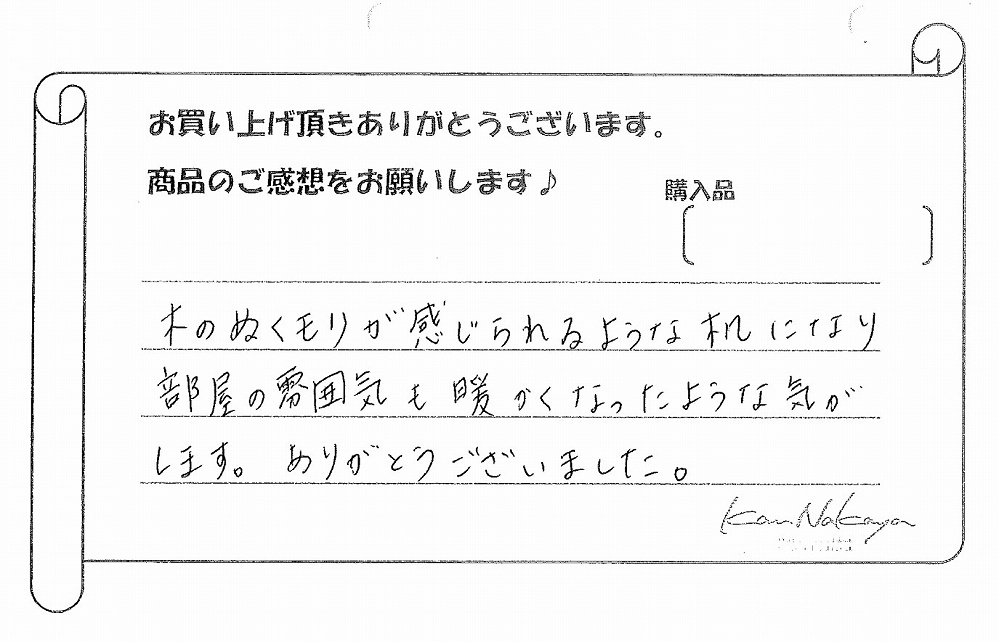 お買い上げ頂きありがとうございます。
商品のご感想をお願いします♪
購入品
木のぬくモリが感じられるような机になり
部屋の雰囲気も暖かくなったような気が
します。ありがとうございました。
Kan Nakaya